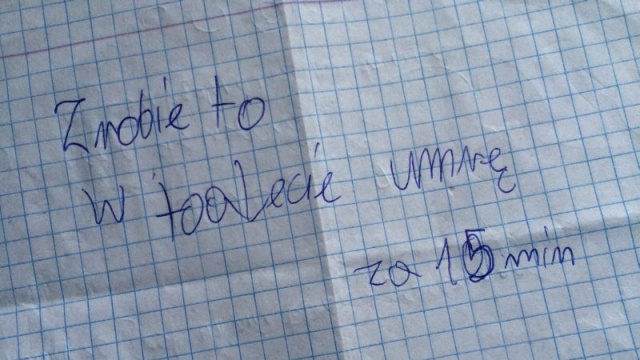 Zrobie to
W toalecie umrę
za 15 min